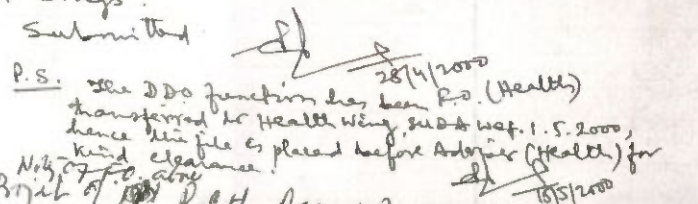 Submitted
28/4/2000
F.O. (Health)
P.S. The DDO function has been
transferred to Health Wing, SUDA wef. 1.5.2000,
hence the file is placed before Advisor (Health) for
kind clearance.
15/5/2000
N.S. of F.O. above